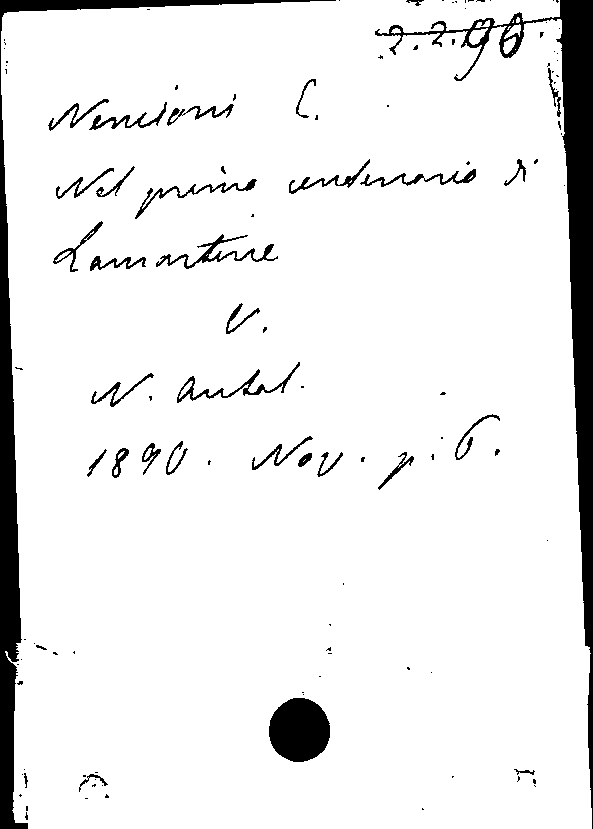 2.2.90.
Nencioni E.
Nel primo centenario di
Lamartine
V.
N. Antol.
1890. Nov. p. 6.